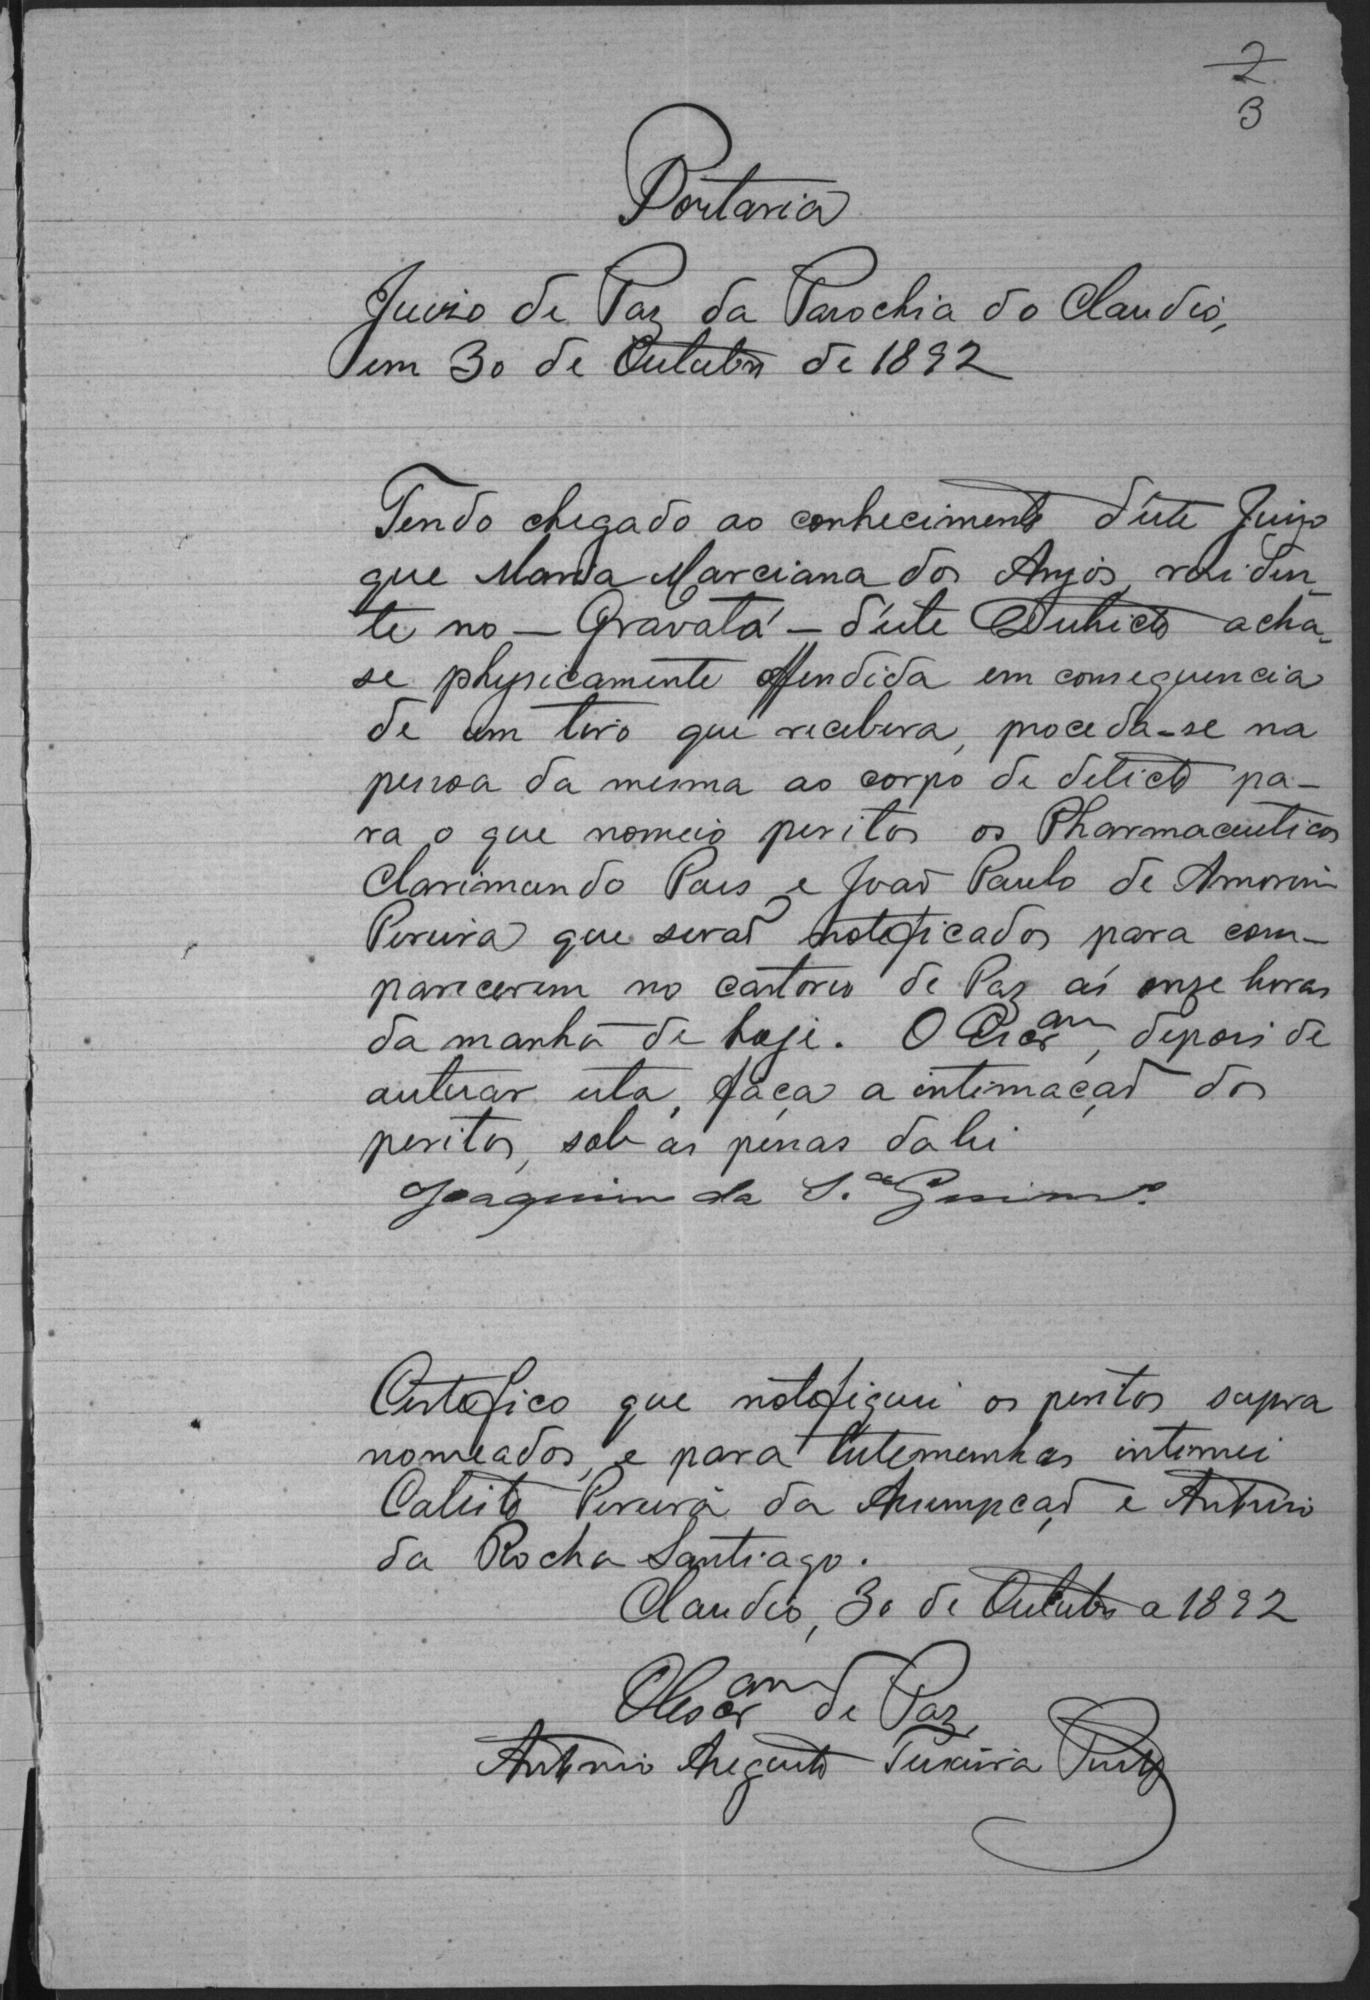 2
3
Portaria
Juizo de Paz da Parochia do Claudio,
em 30 de Outubro de 1892
Tendo chegado ao conhecimento d'este Juizo
que Maria Marciana dos Anjos, residen-
te no — Gravatá — d'este Districto acha-
se physicamente offendida em consequencia
de um tiro que recebera, proceda-se na
pessoa da mesma ao corpo de delicto pa-
ra o que nomeio peritos os Pharmaceuticos
Clarimundo Paes e João Paulo de Amorim
Pereira que serão notificados para com-
parecerem no cartorio de Paz ás onze horas
da manhã de hoje. O Escr.am, depois de
autuar esta, faça a intimação dos
peritos, sob as penas da lei
Joaquim da S.a Guimes.
Certifico que notifiquei os peritos supra
nomeados, e para testemunhas intimei
Calisto Pereira da Assumpção e Antonio
da Rocha Santiago.
Claudio, 30 de Outubro a 1892
O Escr.am de Paz,
Antonio Augusto Teixeira